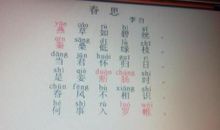 春思
李白
yān cǎo rú bì sī
燕草如碧丝
qín sāng dī lǜ zhī
秦桑低绿枝
dāng jūn huái guī rì
当君怀归日
shì qiè duàn cháng shí
是妾断肠时
chūn fēng bù xiāng shí
春风不相识
hé shì rù luó wéi
何事入罗帷